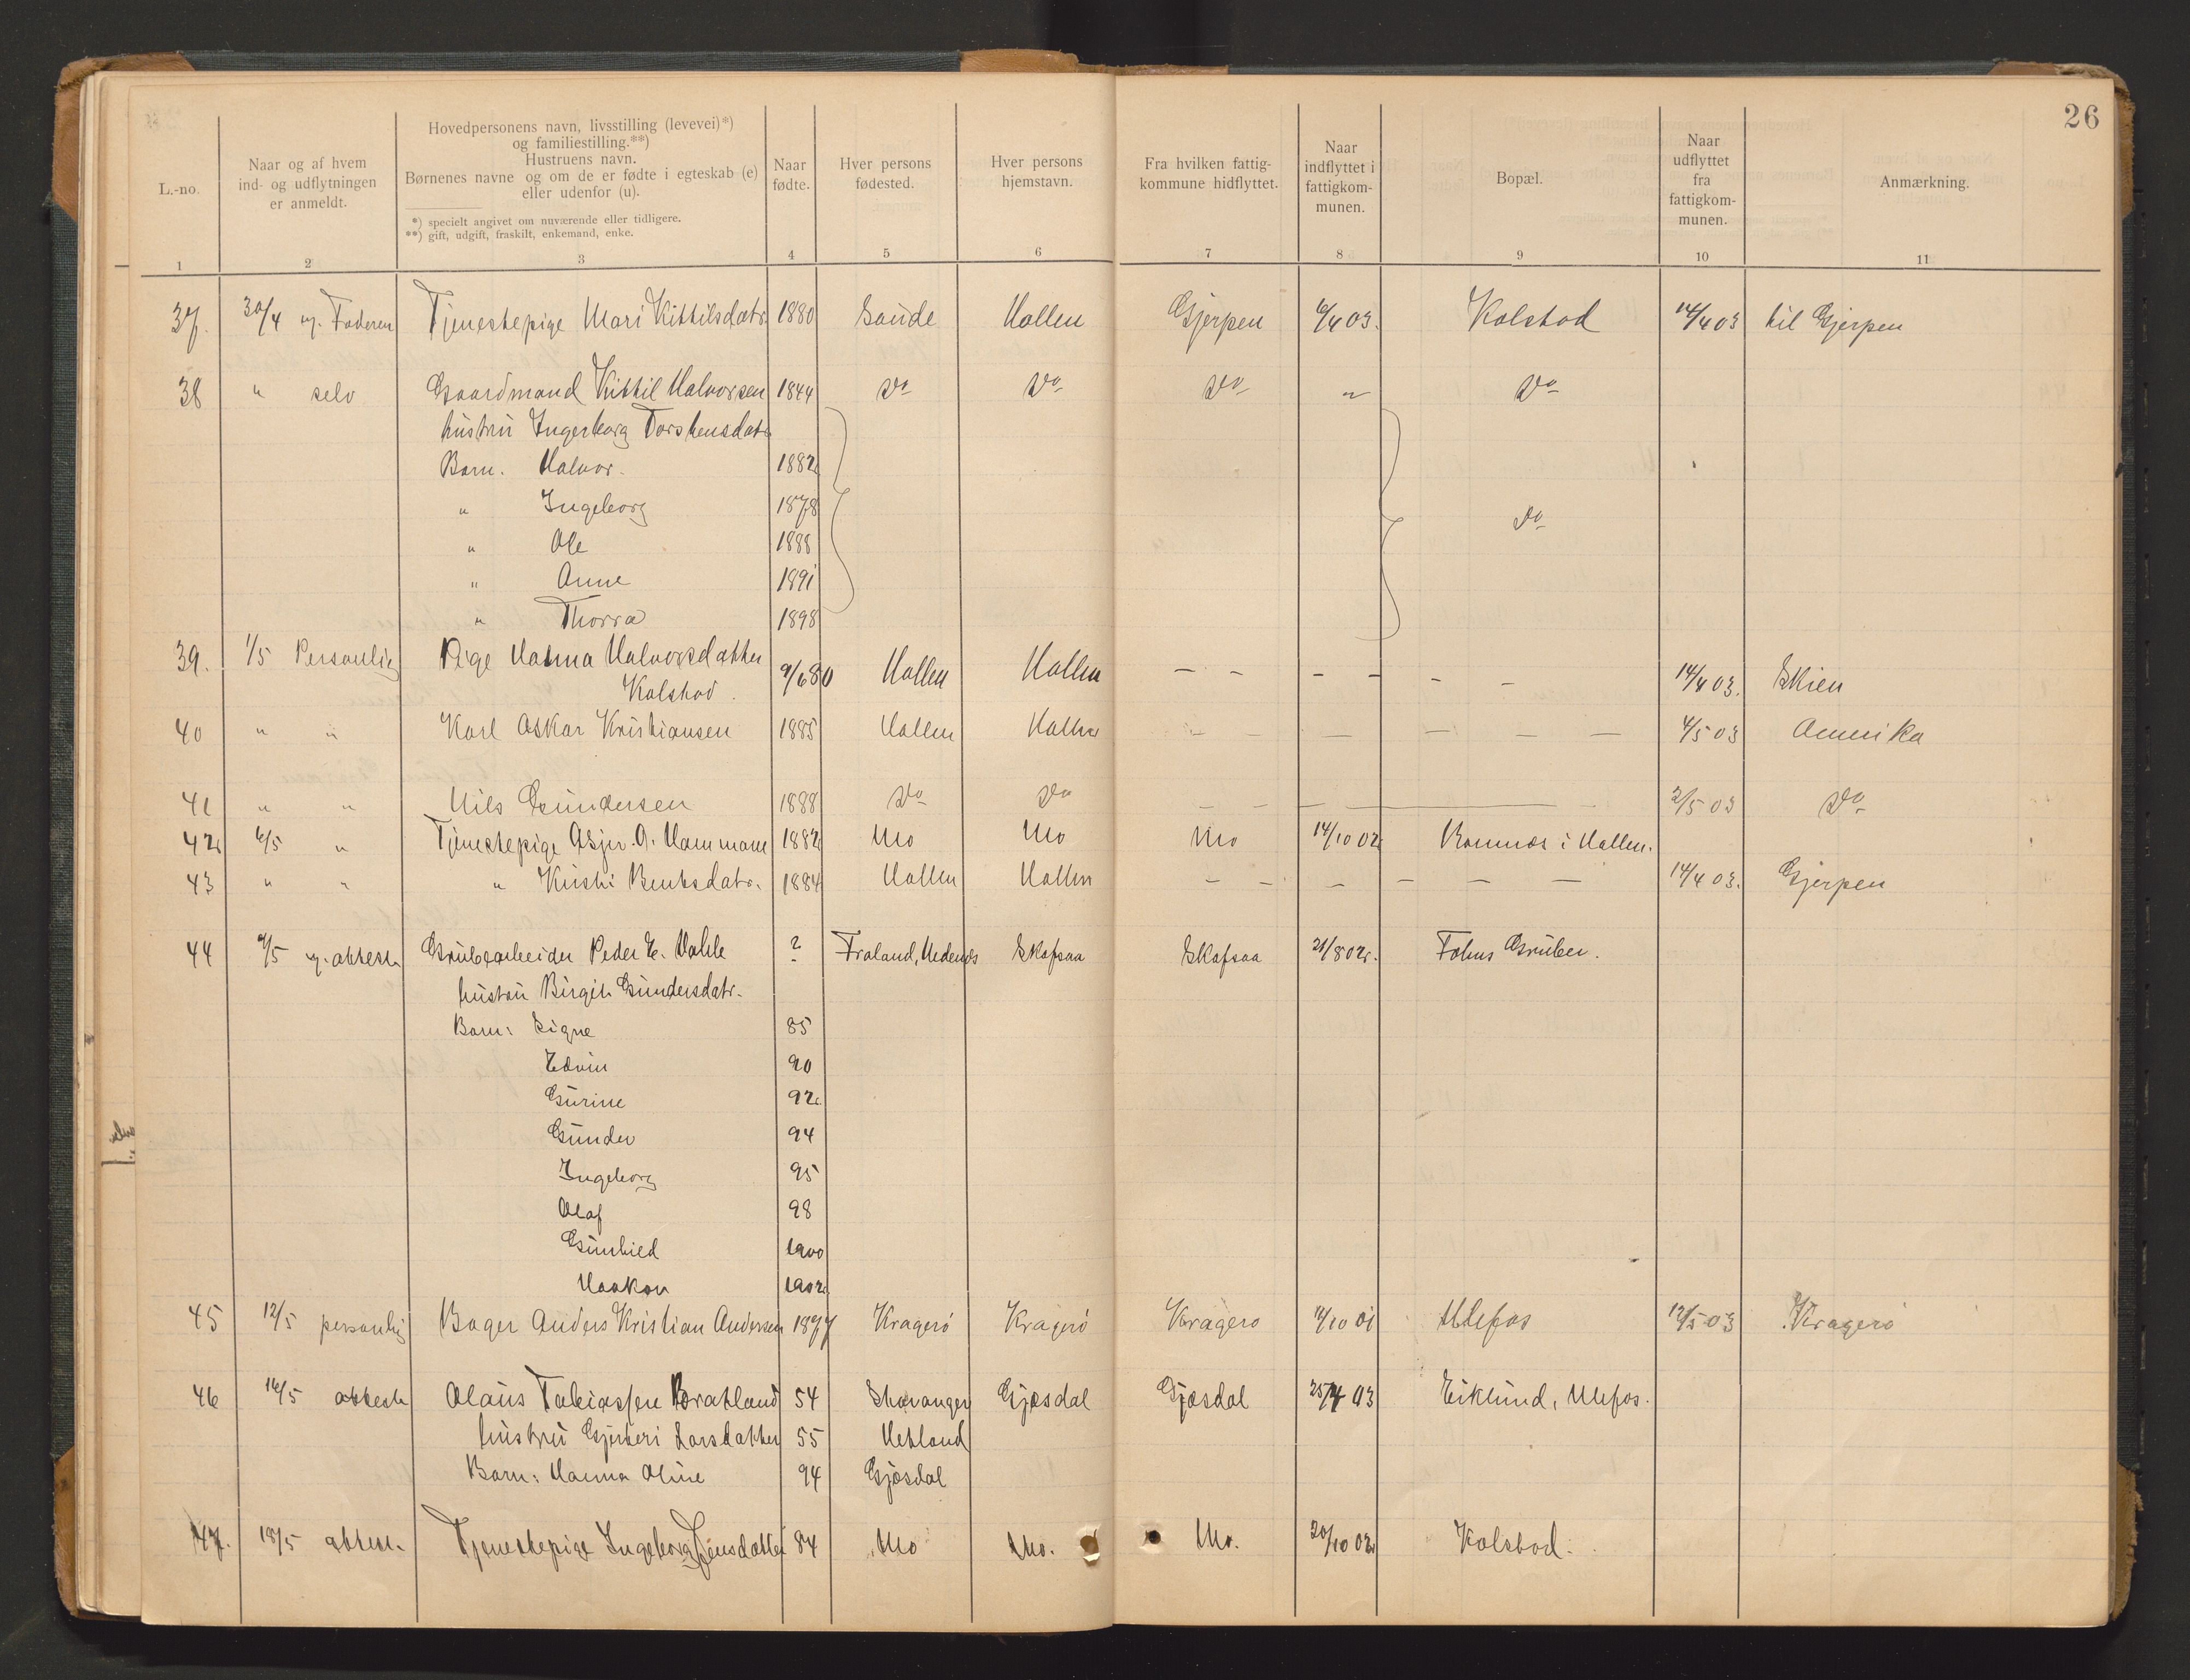 26
L.-no.
Naar og af hvem
ind- og udflytningen
er anmeldt.
Hovedpersonens navn, livsstilling (levevei)*)
og familiestilling.**)
Hustruens navn.
Børnenes navne og om de er fødte i egteskab (e)
eller udenfor (u).
*) specielt angivet om nuværende eller tidligere.
**) gift, udgift, fraskilt, enkemand, enke.
Naar
fødte.
Hver persons
fødested.
Hver persons
hjemstavn.
Fra hvilken fattig-
kommune hidflyttet.
Naar
indflyttet i
fattigkom-
munen.
Bopæl.
Naar
udflyttet
fra
fattigkom-
munen.
Anmærkning.
1 2 3 4 5 6 7 8 9 10 11
37. 30/4 v. Faderen Tjenestepige Mari Kittilsdatr. 1880 Saude Hollen Gjerpen 03. Kolstad 14/4 03 til Gjerpen
38 " selv Gaardmand Kittil Halvorsen 1844 Do Do Do " Do
hustru Ingerborg Torstensdatr
Barn. Halvor. 1882
" Ingeborg 1878 Do
" Ole 1888
" Anne 1891
" Thorra 1898
39. 1/5 Personlig Pige Hanna Halvorsdatter
Kolstad. 9/6 80 Hollen Hollen - - - - - - 14/4 03. Skien
40 " " Karl Oskar Kristiansen 1885 Hollen Hollen - - - - - - 4/5 03 Amerika
41 " " Nils Gundersen 1888 Do Do - - - 2/5 03 Do
42 6/5 " Tjenestepige Asjer. O. Hammane 1882 Mo Mo Mo 14/10 02 Romnes i Hollen.
43 " " " Kirsti Bentsdatr. 1884 Hollen Hollen - - - - - - 14/4 03. Gjerpen
44 9/5 v. attest. Grubearbeider Peder E. Hahle ? Froland, Nedenes Skafsaa Skafsaa 21/8 02. Fehns Gruber.
hustru Birgit Gundersdatr.
Barn: Signe 85
Edvin 90
Gurine 92
Gunder 94
Ingeborg 95
Olaf 98
Gunhild 1900
Haakon 1902
45 12/5 personlig Bager Anders Kristian Andersen 1877 Kragerö Kragerö Kragerö /10 01 Ulefos 12/5 03 Kragerö
46 16/5 attest Olaus Tobiassen Bratland 54 Stavanger Gjæsdal Gjæsdal 25/4 03 Eiklund, Ulefos.
hustru Gjerteri Larsdatter 55 Hetland
Barn: Hanna Oline 94 Gjæsdal
47. 18/5 attest. Tjenestepige Ingeborg Jensdatter 84 Mo Mo. Mo. 20/10 02 Kolstad.